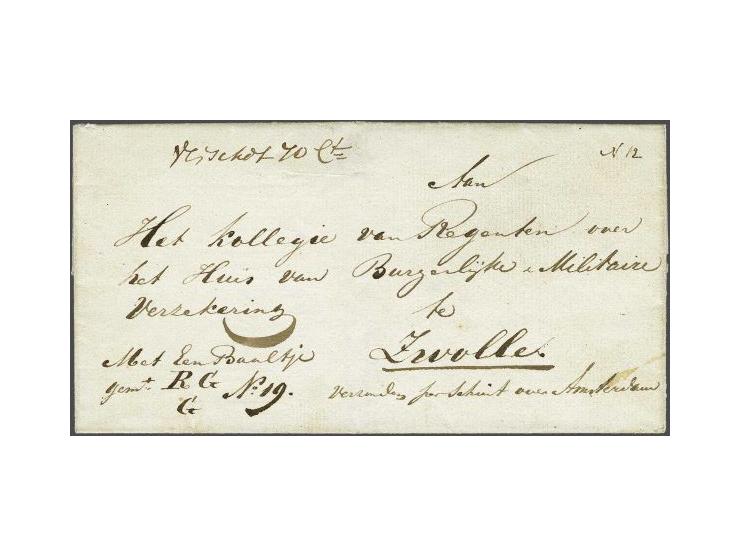 Verschot 70 Cts
N 12
Aan
Het kollegie van Regenten over
het Huis van Burgerlijke & Militaire
Verzekering te
Zwolle.
Met Een Baaltje
gemt. R G No. 19.
G
Verzonden per Schint over Amsterdam